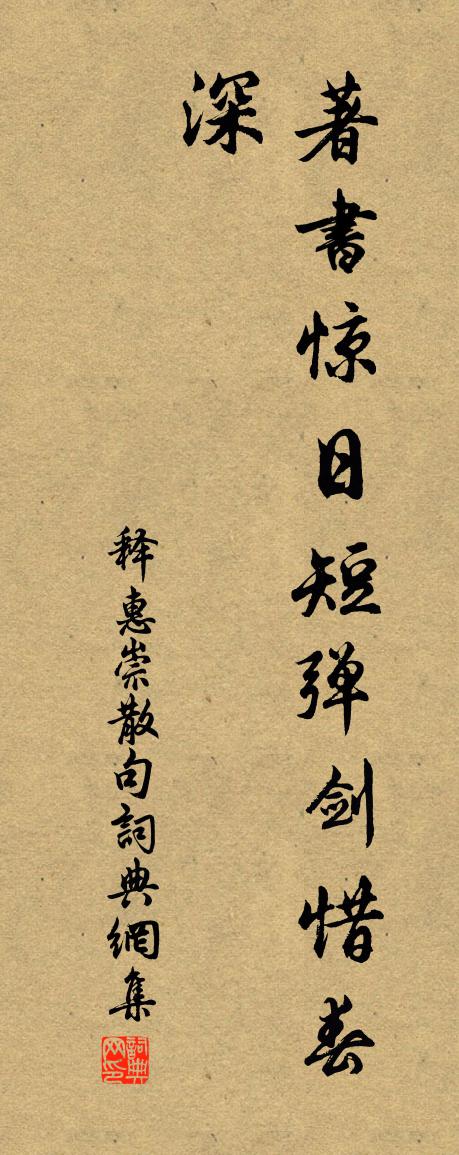 著書惊日短弹剑惜春
深
释惠崇散句詞典網集
詞典
网印